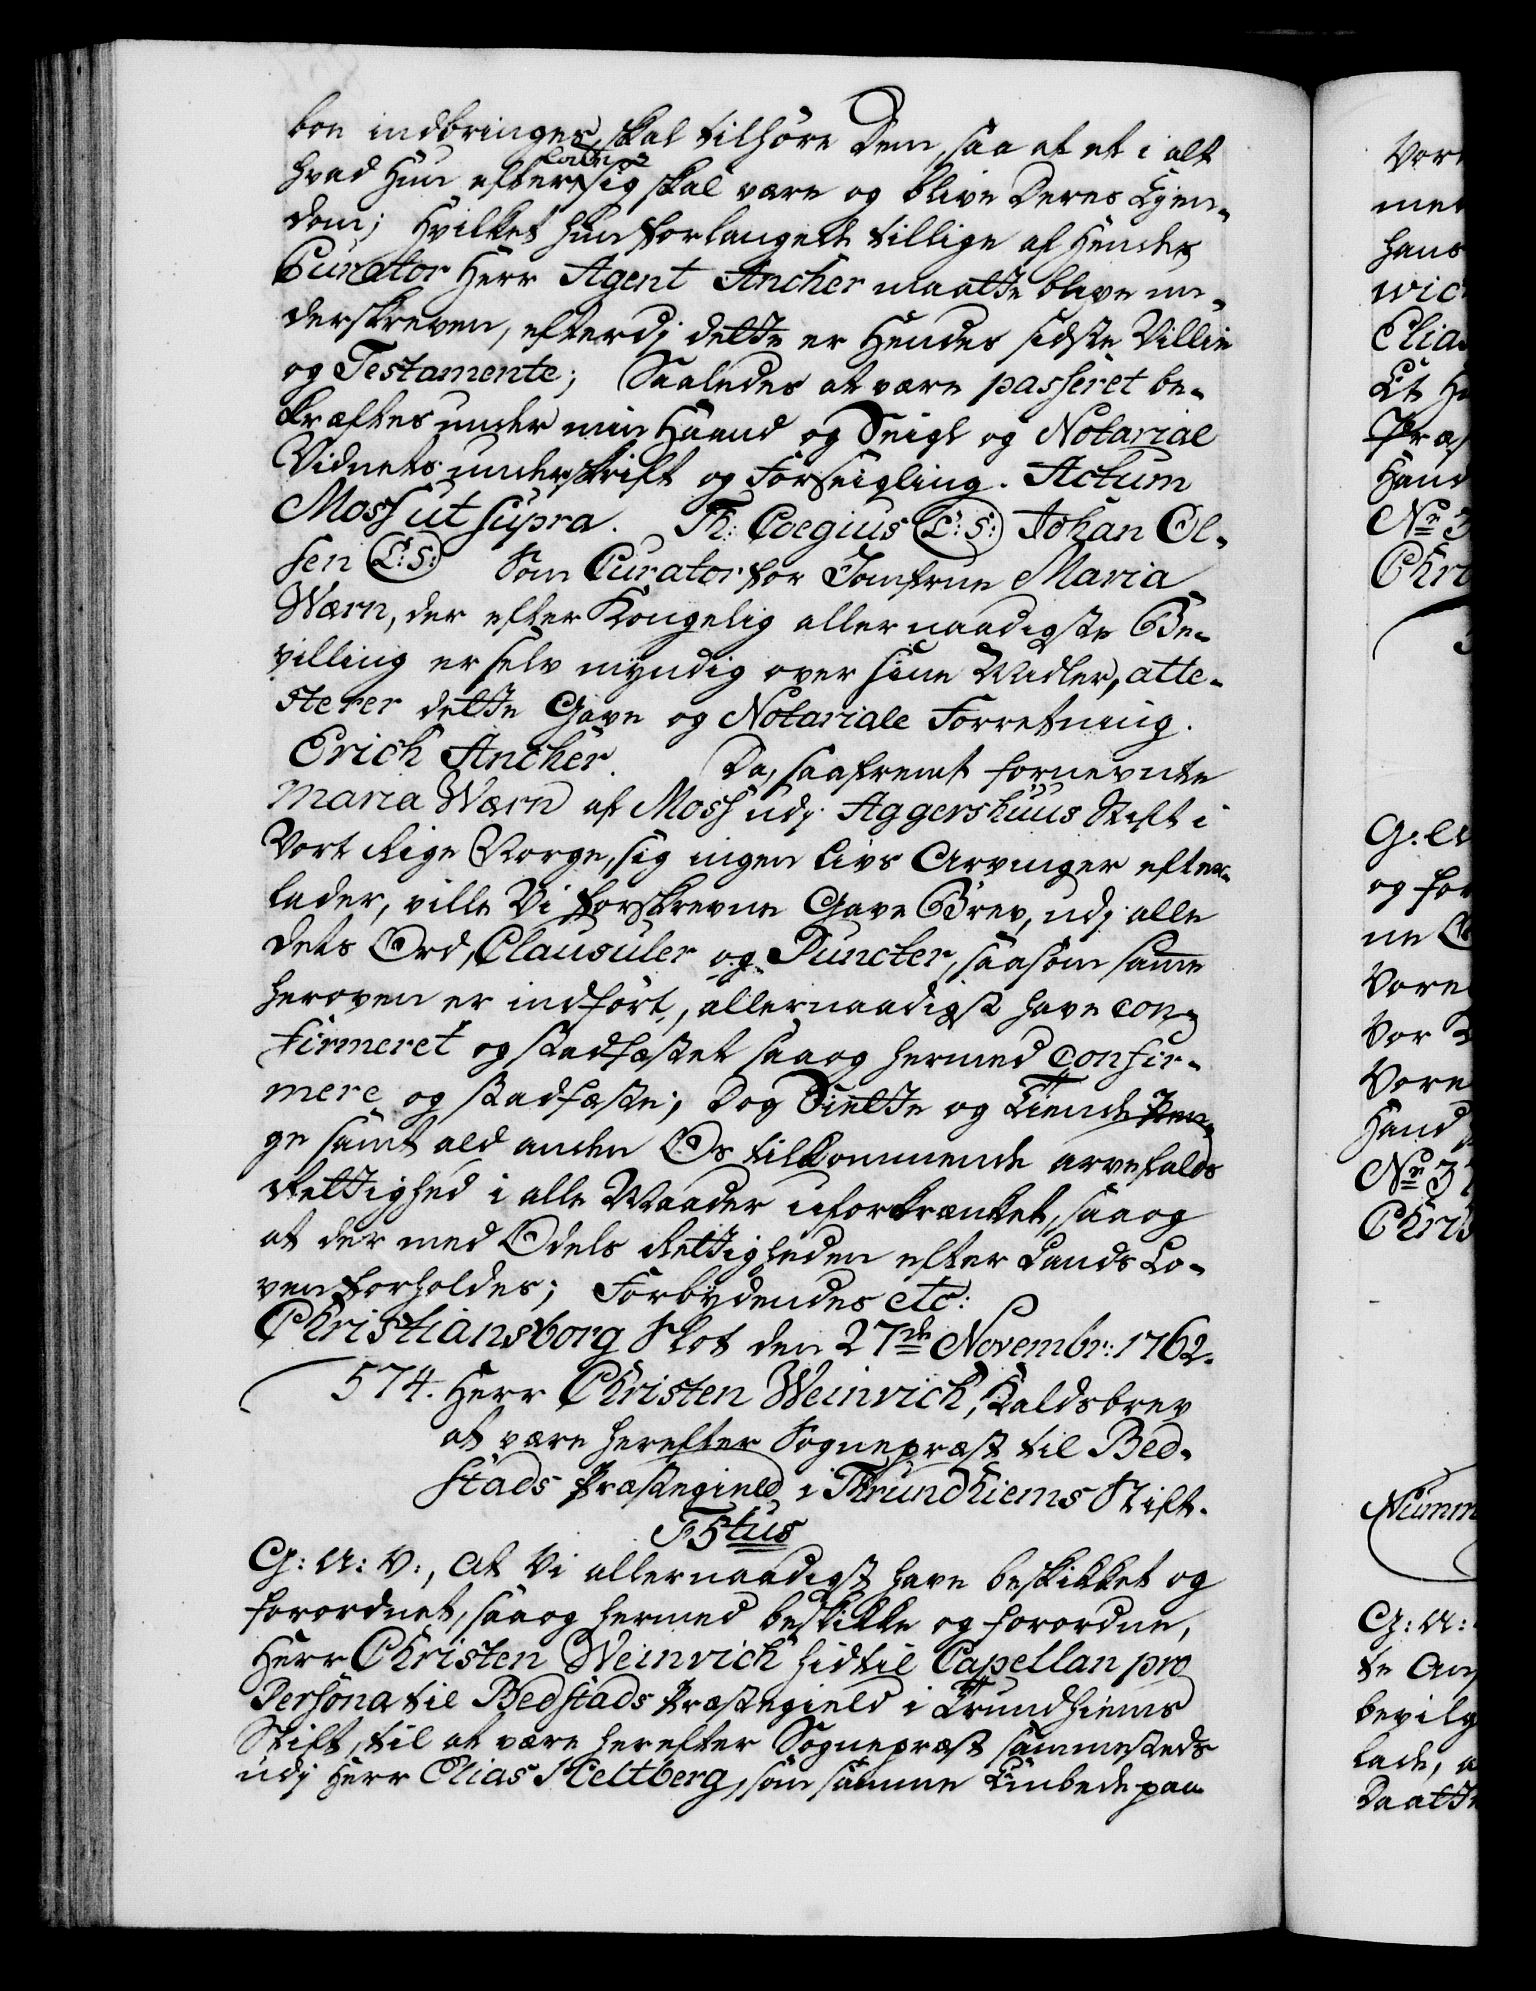 boe indbringes, skal tilhøre Dem, saa at et i alt
hvad Hun efter lader sig skal være og blive Deres Ejen-
dom; Hvilket hun forlangede tillige af Hendes
Curator Herr Agent Ancher maatte blive un-
derskreven, efterdi dette er Hendes sidste Villie
og Testamente; Saaledes at være passeret be-
kræftes under min Haand og Seigl og Notarial
Vidnets underskrift og Forseigling. Actum
Moss ut supra. Th: Coegius (L:S:) Johan Ol-
sen (L:S:) Som Curator for Jomfrue Maria
Wærn, der efter Kongelig allernaadigste Be-
villing er selv myndig over sine Midler, atte-
sterer dette Gave og Notariale Forretning.
Erich Ancher. Da, saafremt fornevnte
Maria Wærn af Moss udj Aggershuus Stift i
Vort Rige Norge, sig ingen Livs Arvinger efter-
lader, ville Vi forskrevne Gave Brev, udj alle
dets Ord, Clausuler og Puncter, saasom samme
heroven er indført, allernaadigst have con-
firmeret og stadfæstet saa og hermed confir-
mere og stadfæste; Dog Siette og Tiende Pen-
ge samt ald anden Os tilkommende arvefalds
Rettighed i alle Maader uforkrænket, saa og
at der med Odels Rettigheden efter Lands Lo-
ven forholdes; Forbydendes etc:
Christiansborg Slot den 27de Novembr: 1762.
574. Herr Christen Weinvich, Kaldsbrev
at være herefter Sognepræst til Bed-
stads Præstegield i Thrundhiems Stift.
F5tus
G: A: V:, At Vi allernaadigst have beskikket og
forordnet, saa og hermed beskikke og forordne,
Herr Christen Weinvich hidtil Capellan pro
Persona til Bedstads Præstegield i Trundhiems
Stift, til at være herefter Sognepræst sammesteds
udj Herr Elias Heltberg, som samme Embede paa